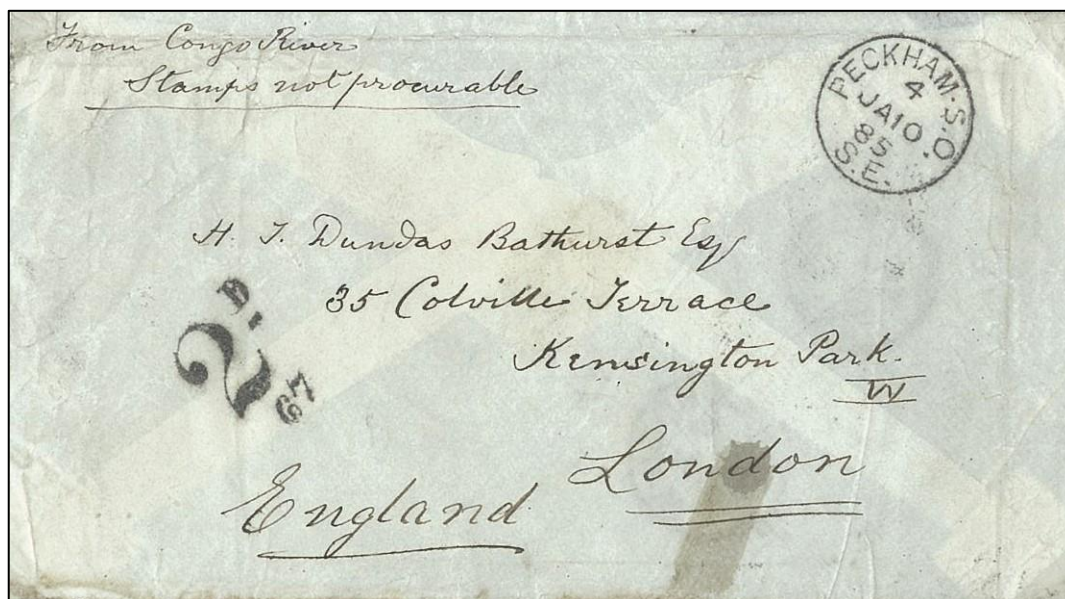 From Congo River
Stamps not procurable
PECKHAM·S.O.
4
JA 10
85
S.E.
H. J. Dundas Bathurst Esq
35 Colville Terrace
Kensington Park.
W
London
England
D.
2
67